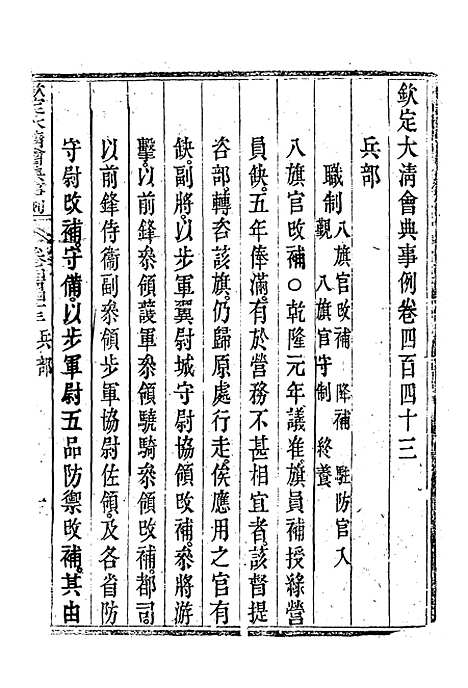 欽定大清會典事例卷四百四十三
兵部
職制 八旗官改補 降補 駐防官入
覲 八旗官守制 終養
八旗官改補○乾隆元年議准旗員補授綠營
員缺五年俸滿有於營務不甚相宜者該督提
咨部轉咨該旗仍歸原處行走俟應用之官有
缺副將以步軍翼尉城守尉改補參將游
擊以前鋒參領護軍參領驍騎參領改補都司
以前鋒侍衞副參領步軍協尉佐領及各省防
守尉改補守備以步軍尉五品防禦改補其由
兵部